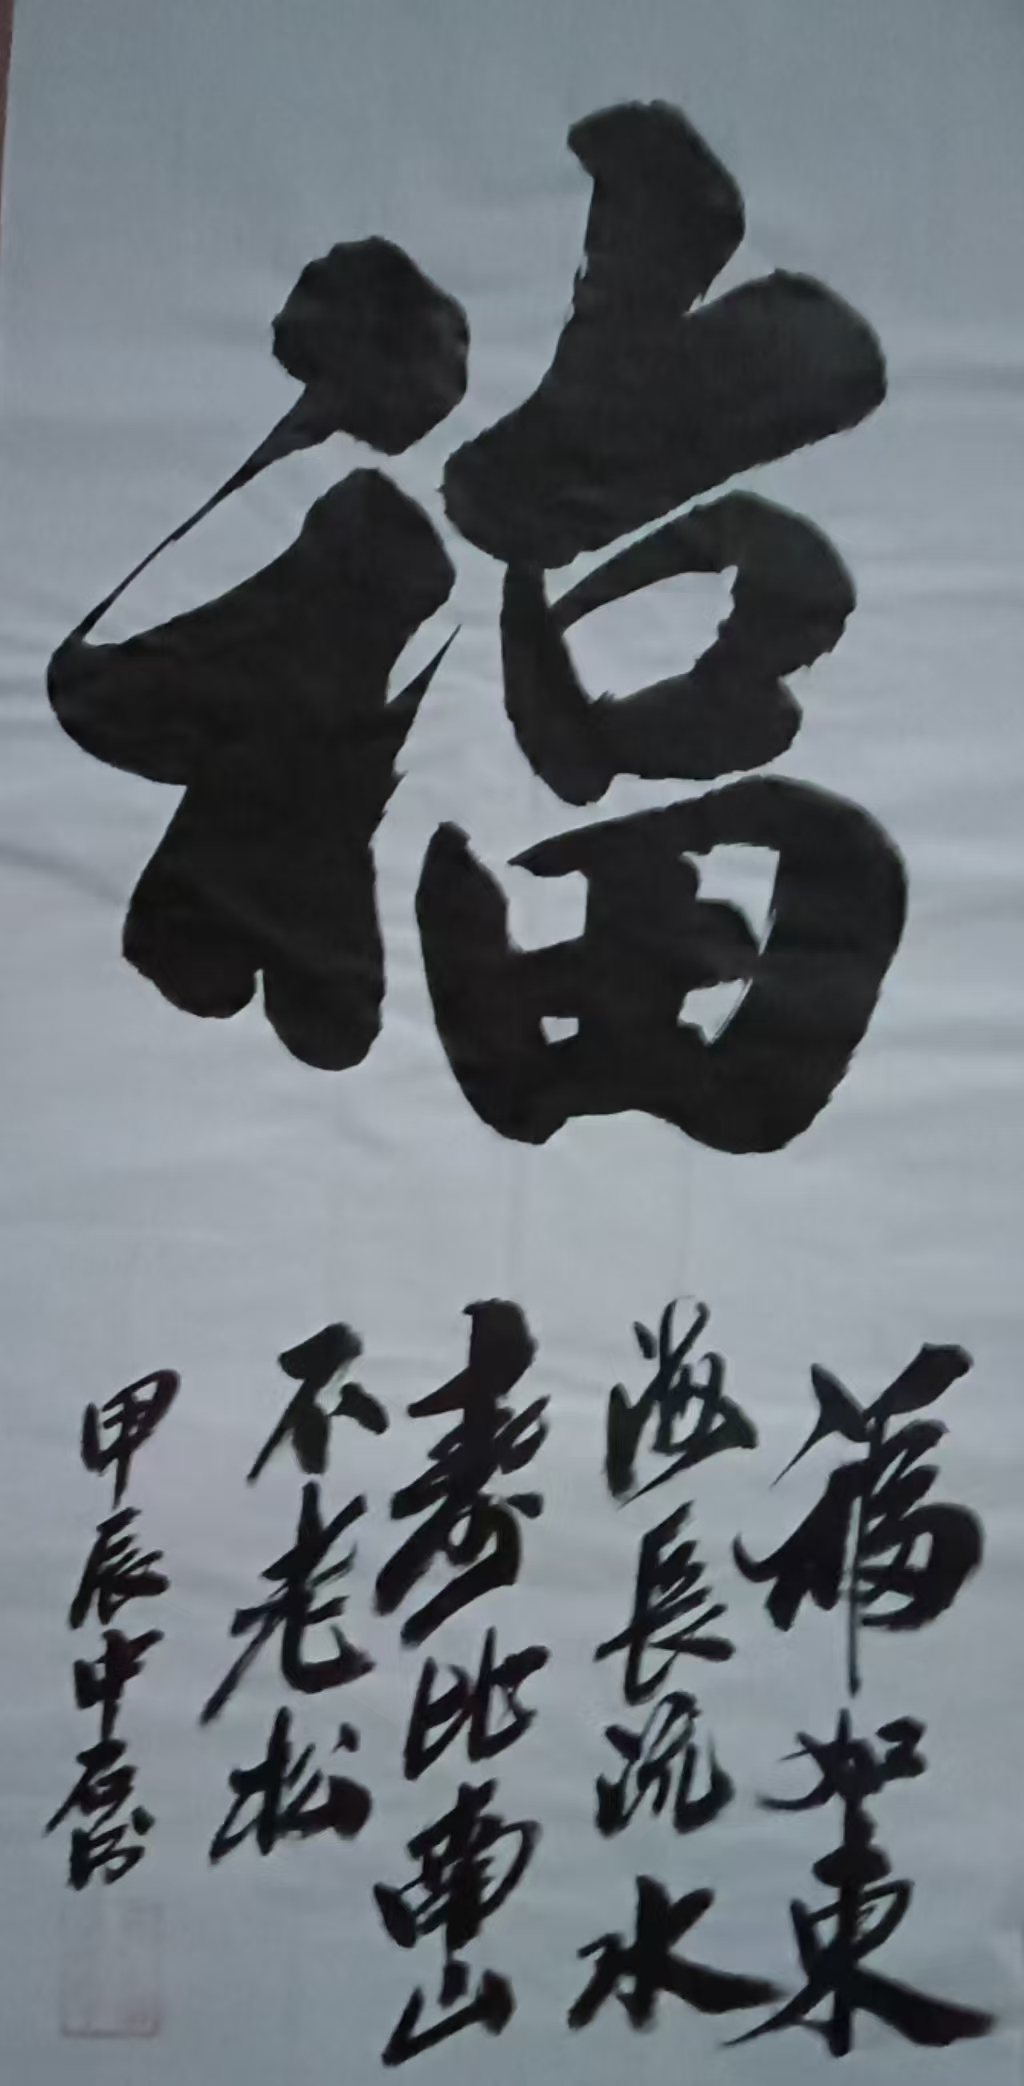 福
福如東
海長流水
壽比南山
不老松
甲辰中石書